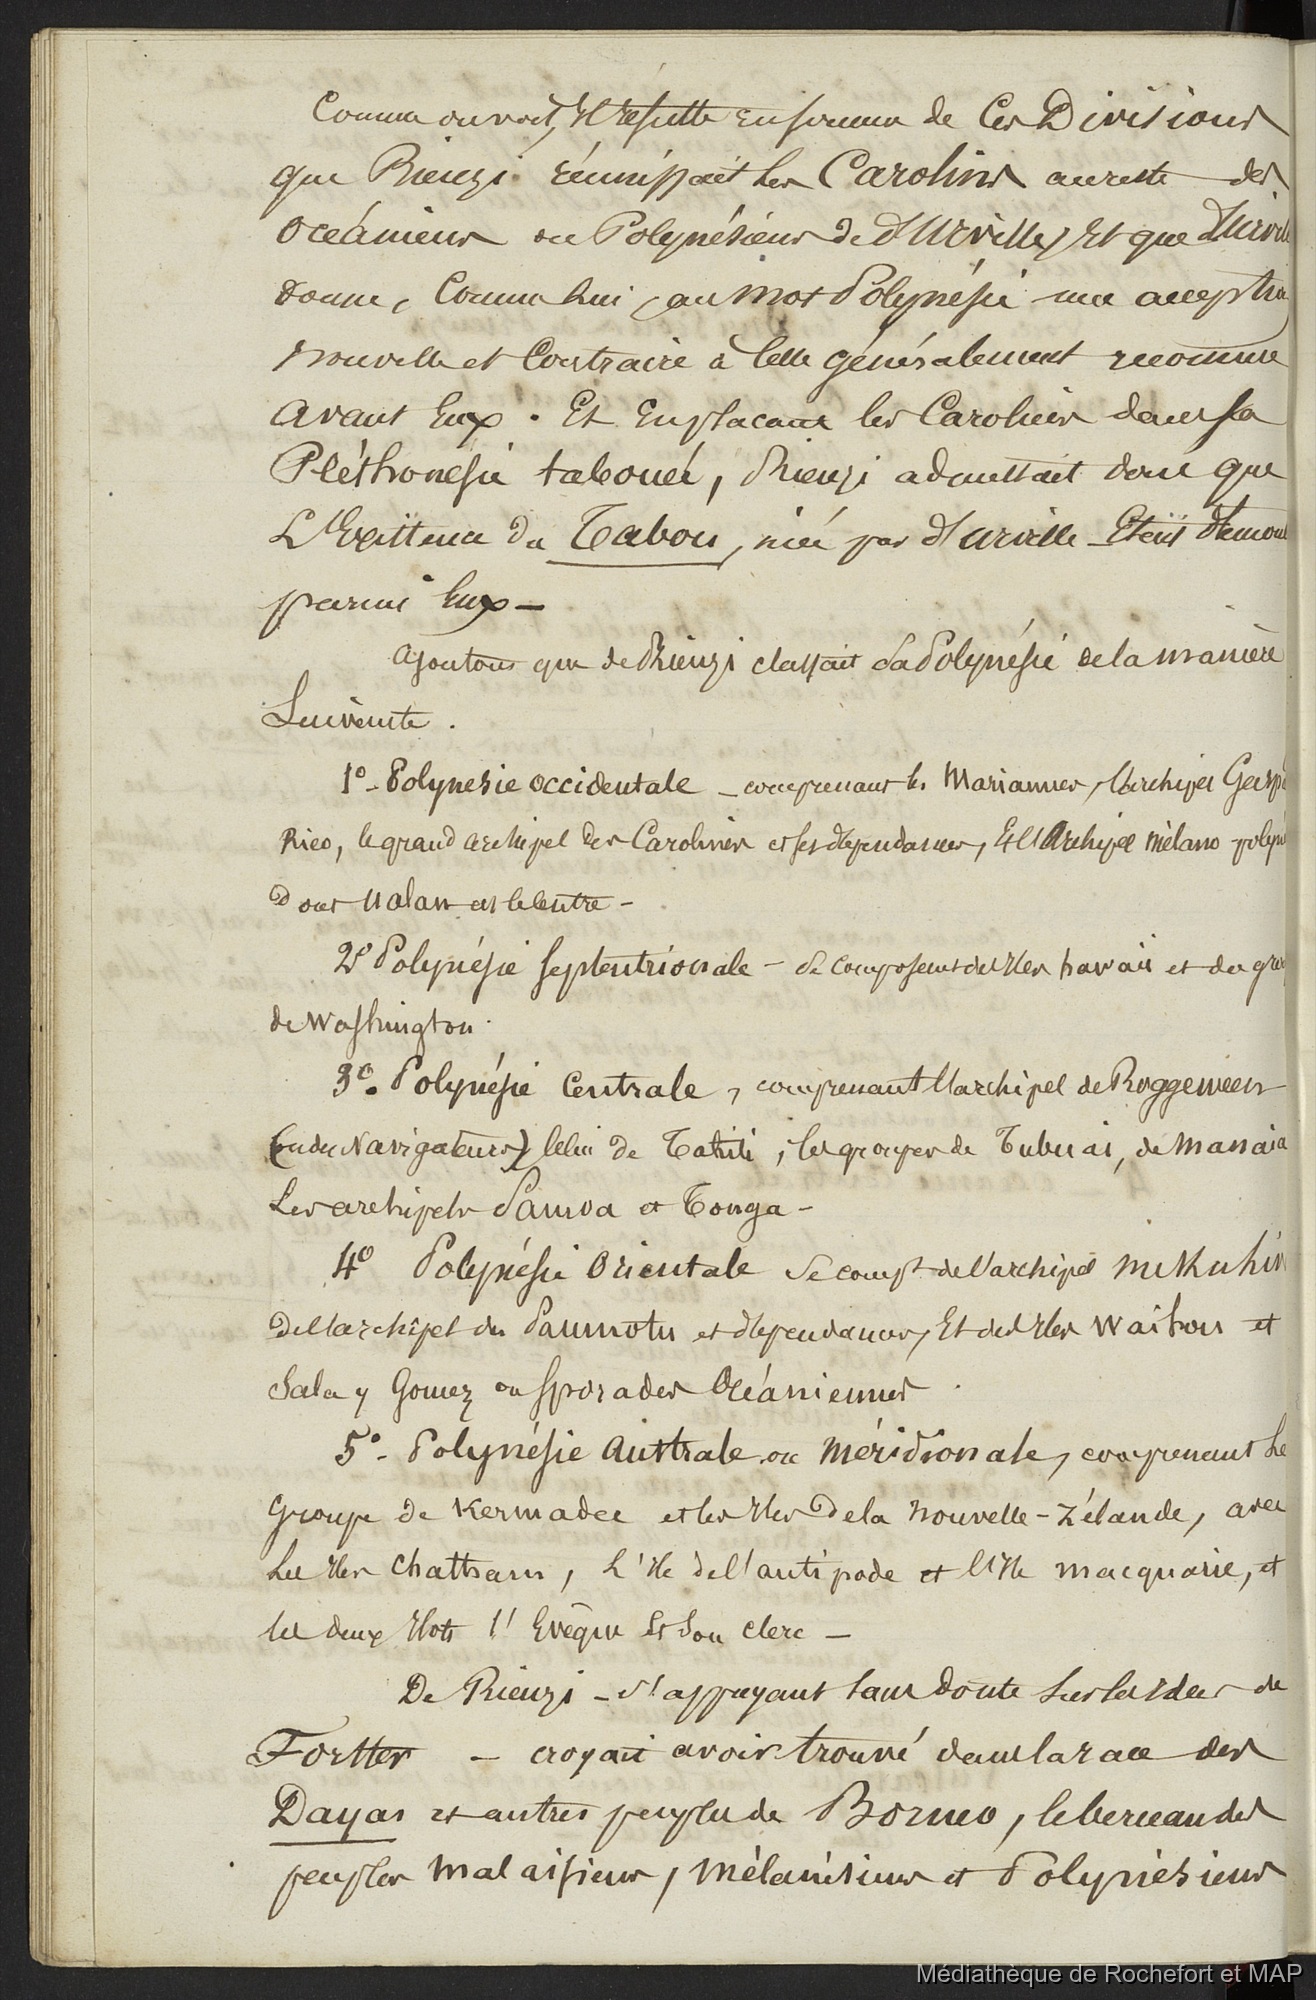 Comme on voit, il résulte en somme de ces Divisions
que Rienzi réunissait les Carolins au reste des
Océaniens ou Polynésiens de d'Urville, et que d'Urville
donne, comme lui, au mot Polynésie une acception
nouvelle et contraire à celle généralement reconnue
avant eux. Et en plaçant les Carolins dans sa
Pléthonésie tabouée, Rienzi admettait donc que
l'Existence du Tabou, niée par d'Urville était
parmi eux —
Ajoutons que de Rienzi classait la Polynésie de la manière
suivante.
1° - Polynesie occidentale — comprenant les Mariannes, l'archipel
Rico, le grand archipel des Carolines et ses dépendances, et l'Archipel mélano-
dont Ualan est le centre —
2° Polynésie septentrionale — se composant des Iles havaii et du
de Washington.
3°. Polynésie Centrale, comprenant l'archipel de Roggeween
(ou des Navigateurs) celui de Tahiti, les groupes de Tubuai, de Manaia
les archipels Samoa et Tonga —
4° Polynésie Orientale se compt de l'archipel
de l'archipel des Paumotu et dépendances, et des Iles Waihou et
Sala y Gomez ou sporades Océaniennes.
5° - Polynésie Australe ou méridionale, comprenant le
groupe de Kermadec et les Iles de la Nouvelle-Zélande, avec
les Iles Chattam, l'Ile de l'antipode et l'Ile macquarie, et
les deux Ilots l'Evêque et son clerc —
De Rienzi — s'appuyant sans doute sur les idées de
Forster — croyait avoir trouvé dans la race des
Dayas et autres peuples de Borneo, le berceau des
peuples malaisiens, mélanésiens et Polynésiens
Médiathèque de Rochefort et MAP